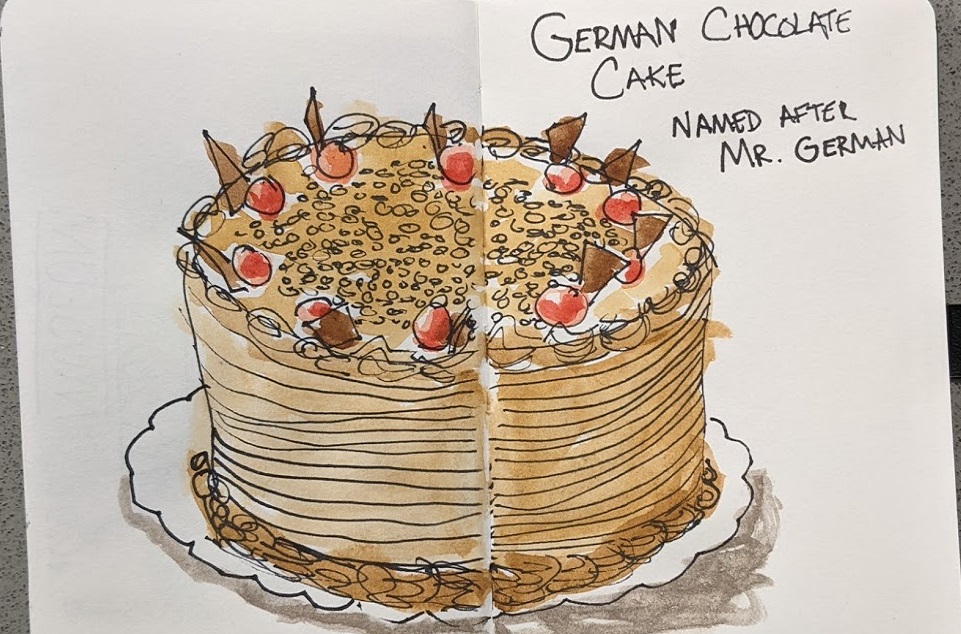 GERMAN CHOCOLATE
CAKE
NAMED AFTER
MR. GERMAN